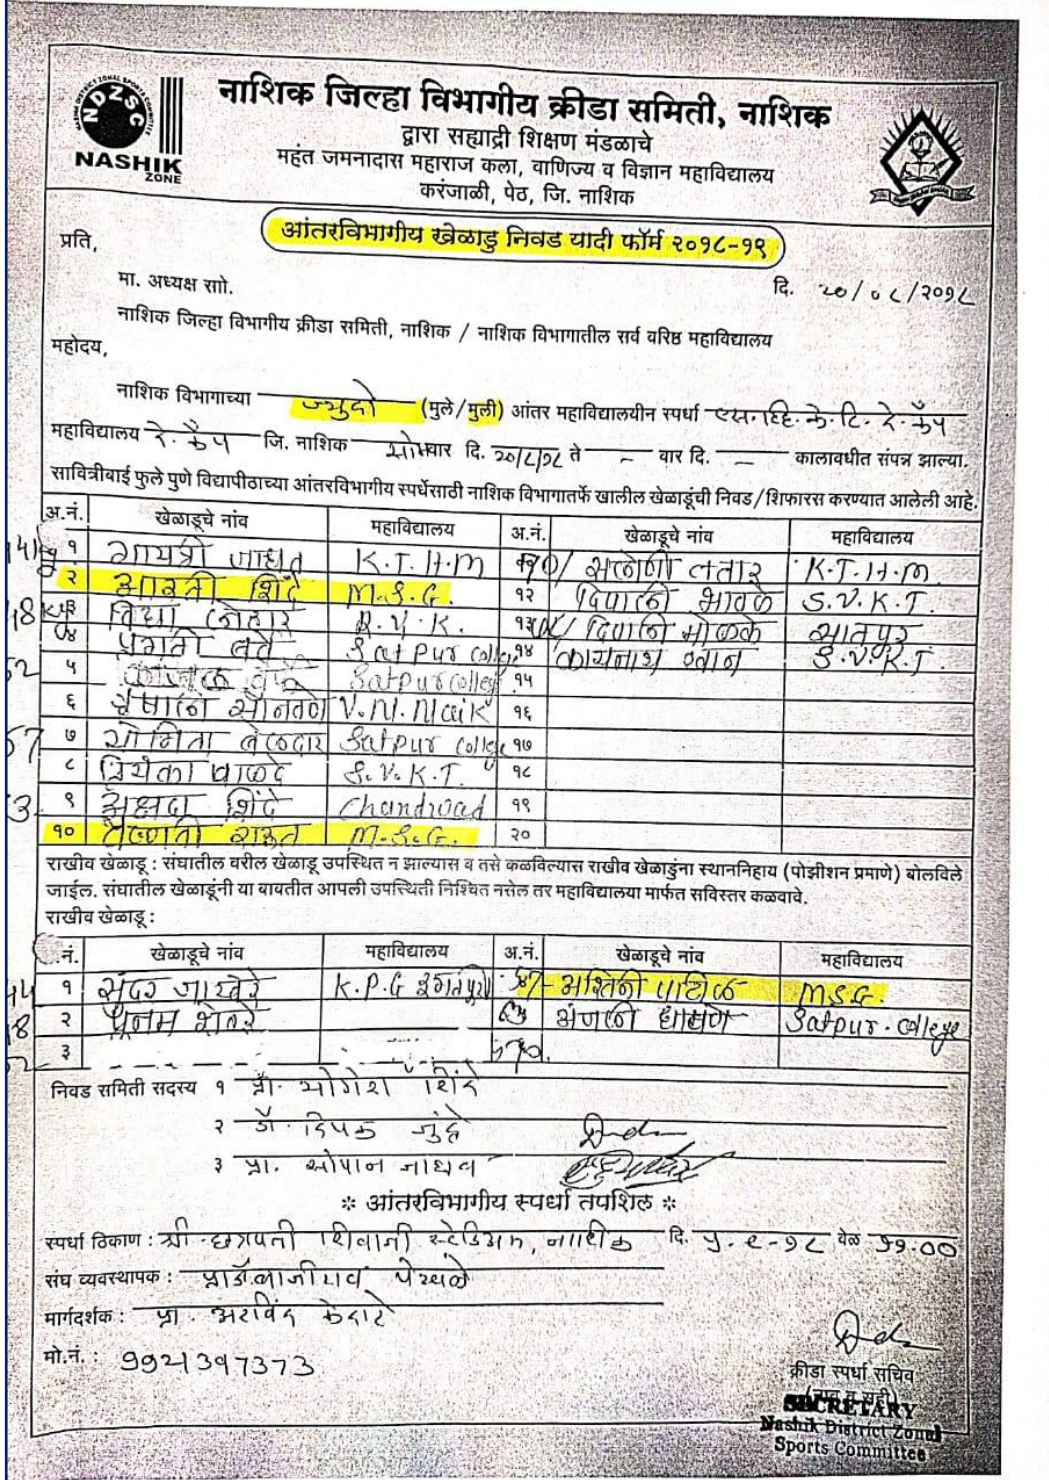 NDZSC
NASHIK
ZONE
नाशिक जिल्हा विभागीय क्रीडा समिती, नाशिक
द्वारा सह्याद्री शिक्षण मंडळाचे
महंत जमनादास महाराज कला, वाणिज्य व विज्ञान महाविद्यालय
करंजाळी, पेठ, जि. नाशिक
आंतरविभागीय खेळाडु निवड यादी फॉर्म २०१८-१९
प्रति,
मा. अध्यक्ष सो. दि. २०/०८/२०१८
नाशिक जिल्हा विभागीय क्रीडा समिती, नाशिक / नाशिक विभागातील सर्व वरिष्ठ महाविद्यालय
महोदय,
नाशिक विभागाच्या ज्युदो (मुले/मुली) आंतर महाविद्यालयीन स्पर्धा एस.व्हि.के.टि. दे. कॅंप
महाविद्यालय दे. कॅंप जि. नाशिक सोमवार दि. २०/८/१८ ते - वार दि. - कालावधीत संपन्न झाल्या.
सावित्रीबाई फुले पुणे विद्यापीठाच्या आंतरविभागीय स्पर्धेसाठी नाशिक विभागातर्फे खालील खेळाडूंची निवड/शिफारस करण्यात आलेली आहे.
अ.नं. खेळाडूचे नांव महाविद्यालय अ.नं. खेळाडूचे नांव महाविद्यालय
१ गायत्री जाधव K.T.H.M सलोणी लतार K.T.H.M.
२ आरती शिंदे M.S.G. १२ दिपाली S.V.K.T.
विद्या १३ दिपाली सातपूर
प्रगती Satpur college १४ कायनाथ खान S.V.K.T.
५ Satpur college १५
६ वैषाली सोनवणे V.N.Naik १६
७ योगिता बेलदार Satpur college १७
८ S.V.K.T. १८
९ अक्षदा शिंदे Chandwad १९
१० वैष्णवी राऊत M.S.G. २०
राखीव खेळाडू : संघातील वरील खेळाडू उपस्थित न झाल्यास व तसे कळविल्यास राखीव खेळाडुंना स्थाननिहाय (पोझीशन प्रमाणे) बोलविले
जाईल. संघातील खेळाडूंनी या बाबतीत आपली उपस्थिती निश्चित नसेल तर महाविद्यालया मार्फत सविस्तर कळवावे.
राखीव खेळाडू :
नं. खेळाडूचे नांव महाविद्यालय अ.नं. खेळाडूचे नांव महाविद्यालय
१ K.P.G इगतपुरी अश्विनी पाटिळ M.S.G.
२ पूनम अंजली Satpur. college
३
निवड समिती सदस्य १ प्रा. योगेश शिंदे
२ डॉ. दिपक जुंद्रे
३ प्रा. सोपान जाधव
* आंतरविभागीय स्पर्धा तपशिल *
स्पर्धा ठिकाण : श्री छत्रपती शिवाजी स्टेडिअम, नाशिक दि. ५-९-१८ वेळ ११.००
संघ व्यवस्थापक : प्रा.डॉ.बाजीराव पेखळे
मार्गदर्शक : प्रा. अरविंद केदारे
मो.नं. : 9921397373
क्रीडा स्पर्धा सचिव
SECRETARY
Nashik District Zonal
Sports Committee